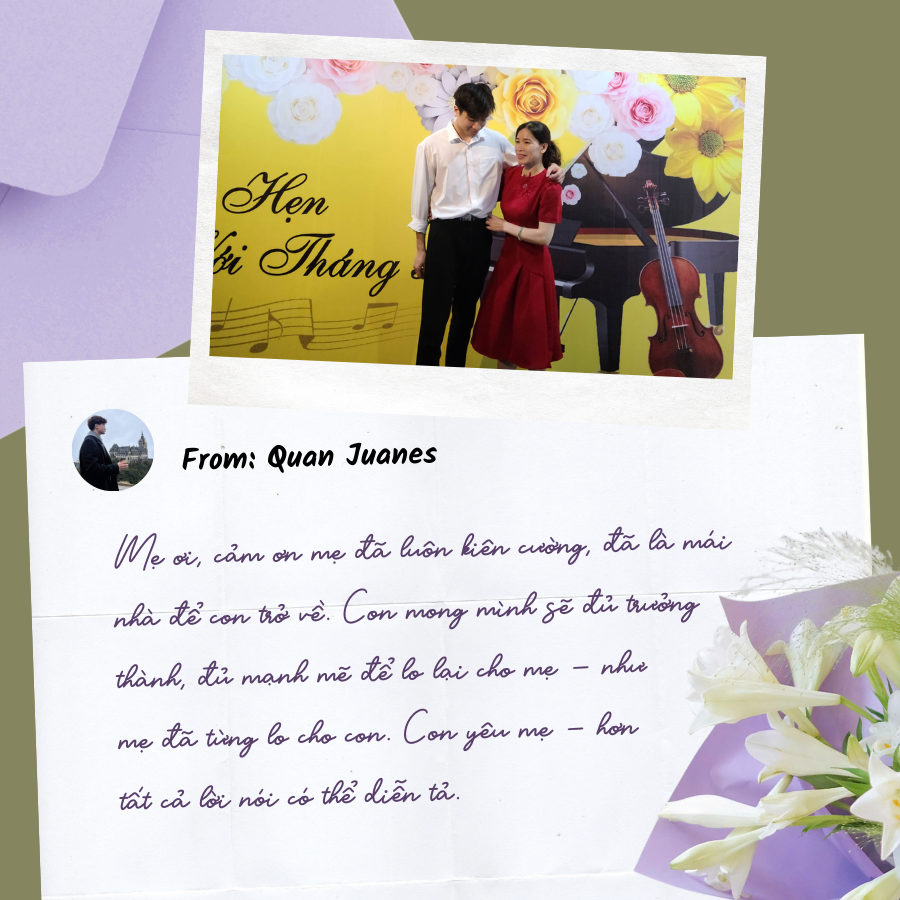 Hẹn
Với Tháng
From: Quan Juanes
Mẹ ơi, cảm ơn mẹ đã luôn kiên cường, đã là mái
nhà để con trở về. Con mong mình sẽ đủ trưởng
thành, đủ mạnh mẽ để lo lại cho mẹ – như
mẹ đã từng lo cho con. Con yêu mẹ – hơn
tất cả lời nói có thể diễn tả.